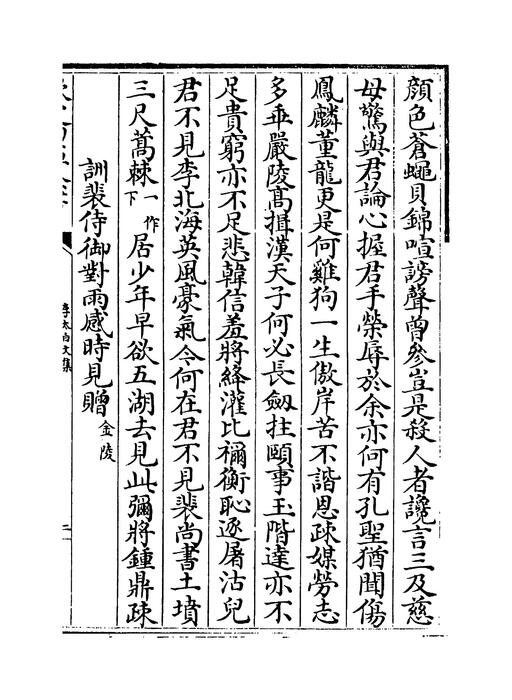 顔色蒼蠅貝錦喧謗聲曾參豈是殺人者讒言三及慈
母驚與君論心握君手榮辱於余亦何有孔聖猶聞傷
鳳麟董龍更是何雞狗一生傲岸苦不諧恩疎媒勞志
多乖嚴陵高揖漢天子何必長劔拄頤事玉階達亦不
足貴窮亦不足悲韓信羞將絳灌比禰衡恥逐屠沽兒
君不見李北海英風豪氣今何在君不見裴尚書土墳
三尺蒿棘一作下居少年早欲五湖去見此彌將鍾鼎疎
詶裴侍御對雨感時見贈金陵
李太白文集